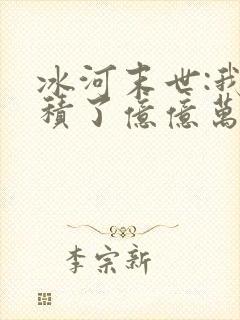 冰河末世:我
積了億億萬
李宗新